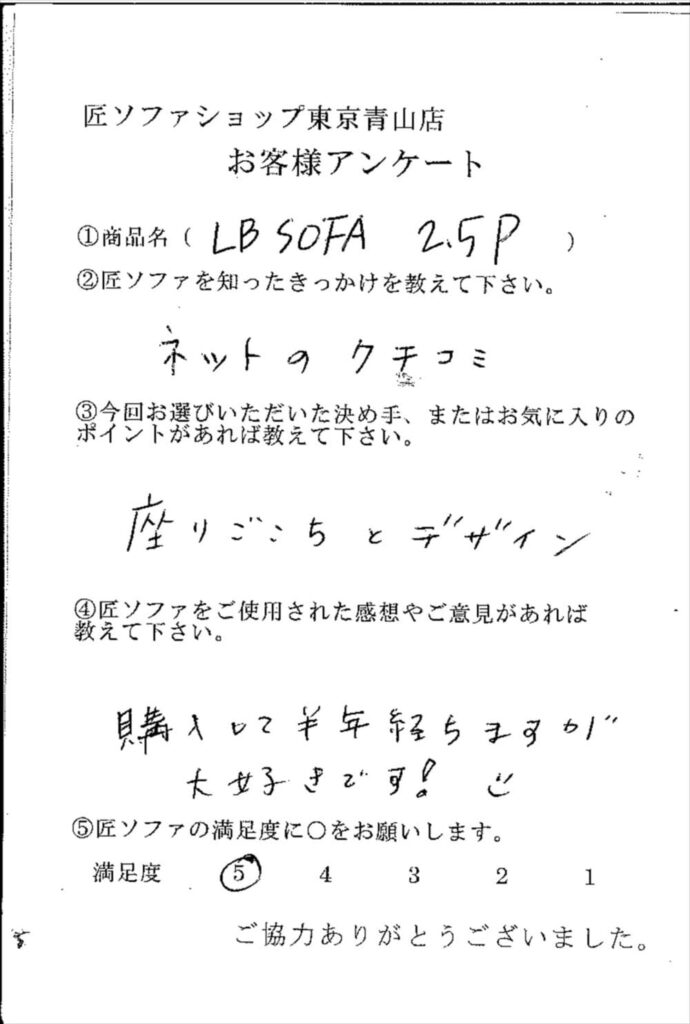 匠ソファショップ東京青山店
お客様アンケート
①商品名（ LB SOFA 2.5P ）
②匠ソファを知ったきっかけを教えて下さい。
ネットの クチコミ
③今回お選びいただいた決め手、またはお気に入りの
ポイントがあれば教えて下さい。
座りごこちとデザイン
④匠ソファをご使用された感想やご意見があれば
教えて下さい。
購入して半年経ちますが
大好きです!
⑤匠ソファの満足度に○をお願いします。
満足度 5 4 3 2 1
ご協力ありがとうございました。